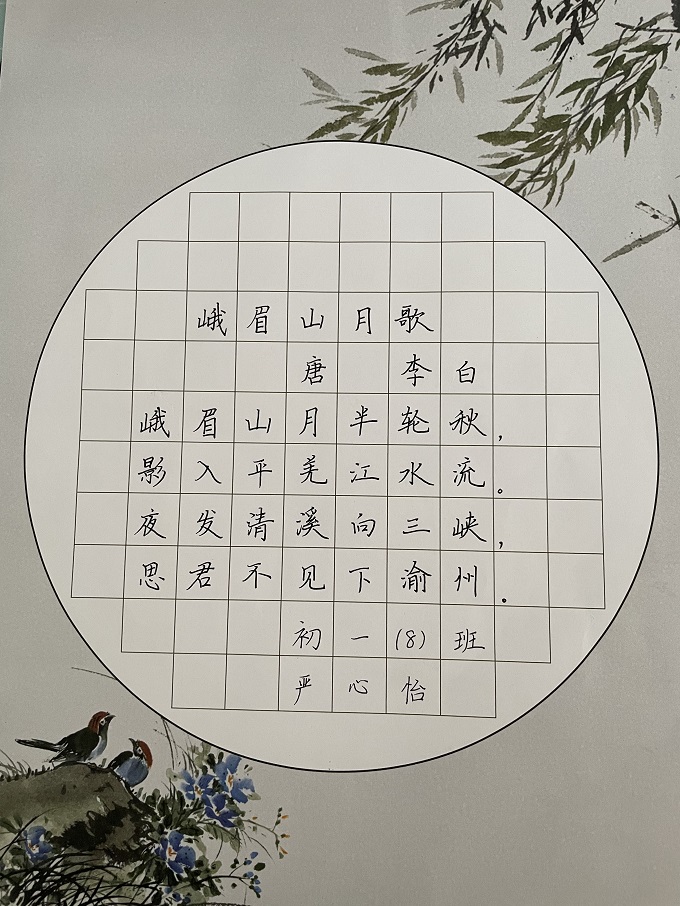 峨眉山月歌
唐 李白
峨眉山月半轮秋，
影入平羌江水流。
夜发清溪向三峡，
思君不见下渝州。
初一(8)班
严心怡